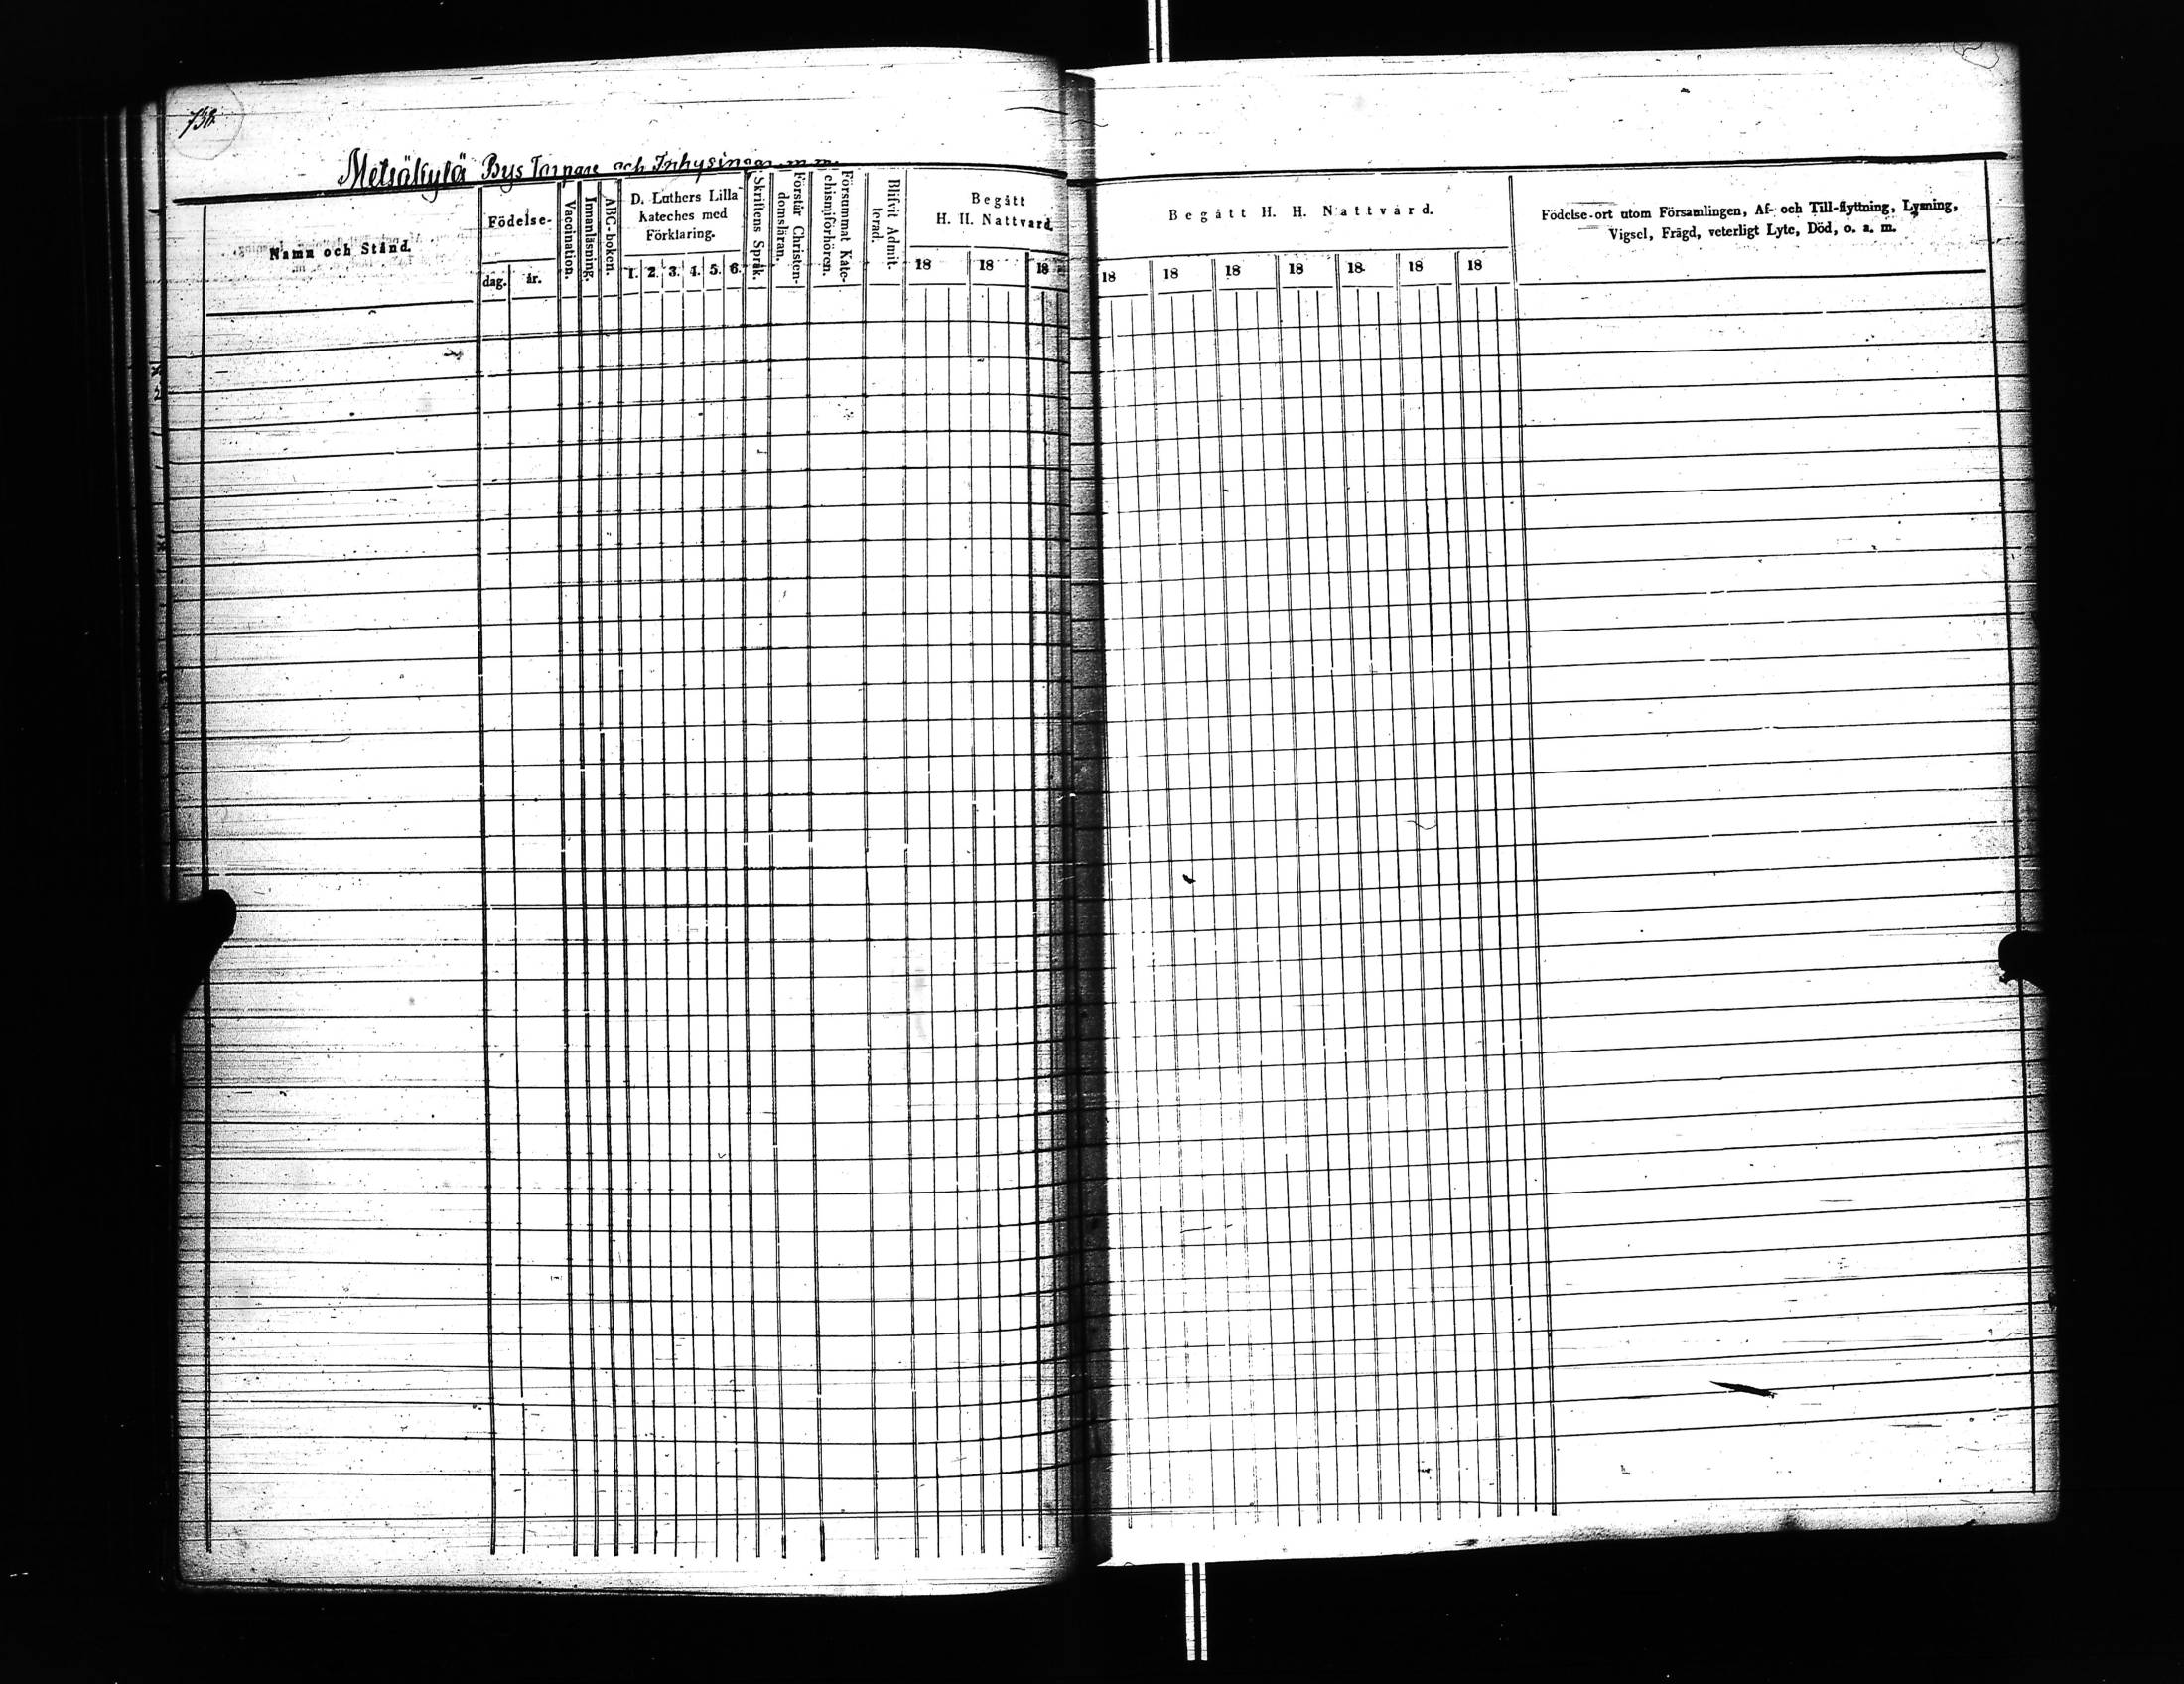 738
Metsäkylä Bys Torpare och Inhysingar m.m.
Namn och Stånd.
Födelse-
dag. år.
Vaccination.
Innanläsning.
ABC-boken.
D. Luthers Lilla
Kateches med
Förklaring.
1. 2. 3. 4. 5. 6.
Skriftens Språk.
Förstår Christen-
domsläran.
Försummat Kate-
chismiförhören.
Blifvit Admit-
terad.
Begått
H. H. Nattvard.
18 18 18
Begått H. H. Nattvard.
18 18 18 18 18 18 18
Födelse-ort utom Församlingen, Af- och Till-flyttning, Lysning,
Vigsel, Frägd, veterligt Lyte, Död, o. a. m.